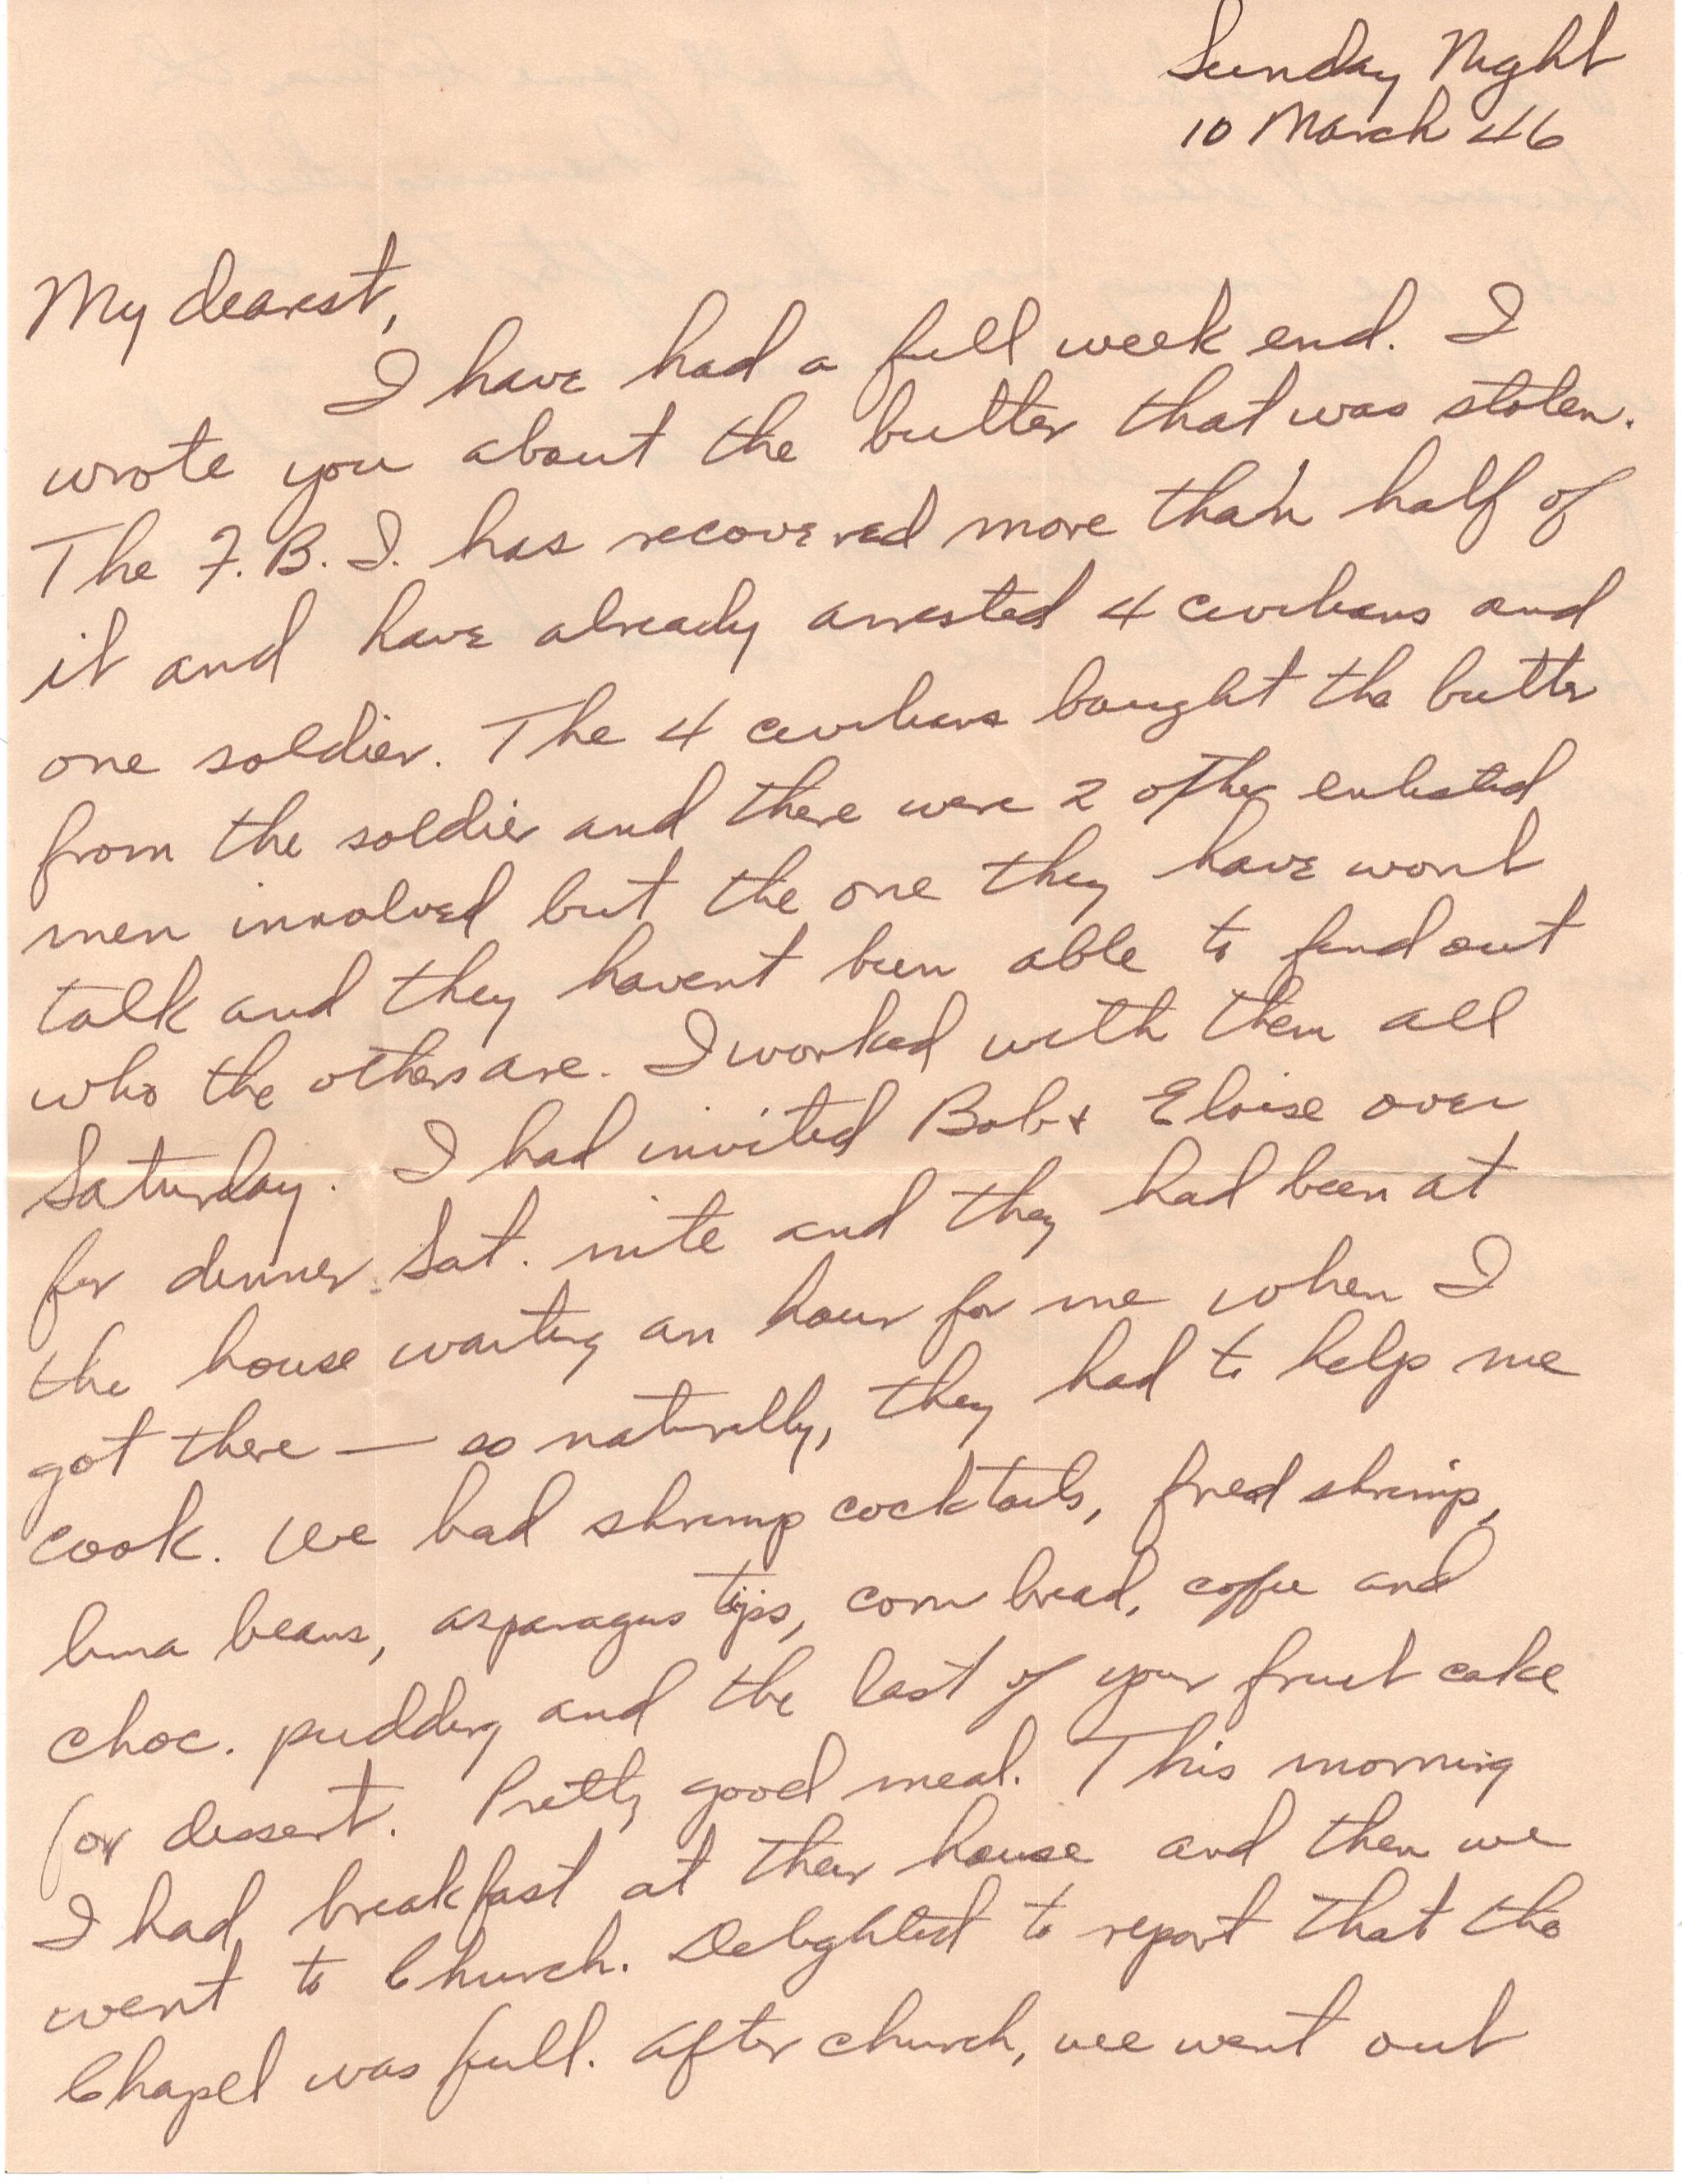 Sunday Night
10 March 46
My dearest,
I have had a full week end. I
wrote you about the butter that was stolen.
The F.B.I. has recovered more than half of
it and have already arrested 4 civilians and
one soldier. The 4 civilians bought the butter
from the soldier and there were 2 other enlisted
men involved but the one they have wont
talk and they havent been able to find out
who the others are. I worked with them all
Saturday. I had invited Bob & Eloise over
for dinner Sat. nite and they had been at
the house waiting an hour for me when I
got there — so naturally, they had to help me
cook. We had shrimp cocktails, fried shrimp,
lima beans, asparagus tips, corn bread, coffee and
choc. pudding and the last of your fruit cake
for dessert. Pretty good meal. This morning
I had breakfast at their house and then we
went to Church. Delighted to report that the
Chapel was full. After church, we went out